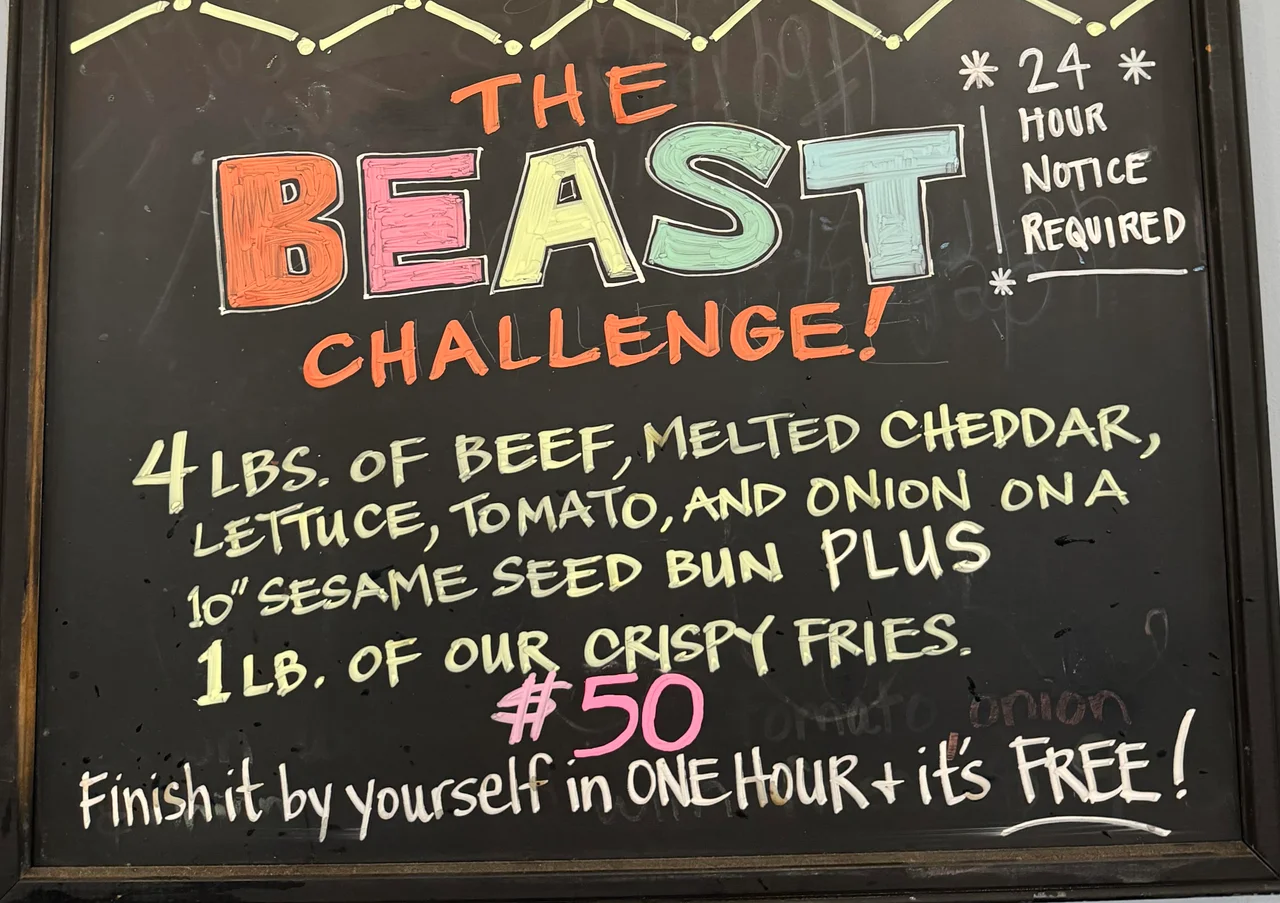 THE
BEAST
CHALLENGE!
* 24 *
HOUR
NOTICE
REQUIRED
*
4 LBS. OF BEEF, MELTED CHEDDAR,
LETTUCE, TOMATO, AND ONION ON A
10" SESAME SEED BUN PLUS
1 LB. OF OUR CRISPY FRIES.
#50
tomato onion
Finish it by yourself in ONE HOUR + it's FREE!